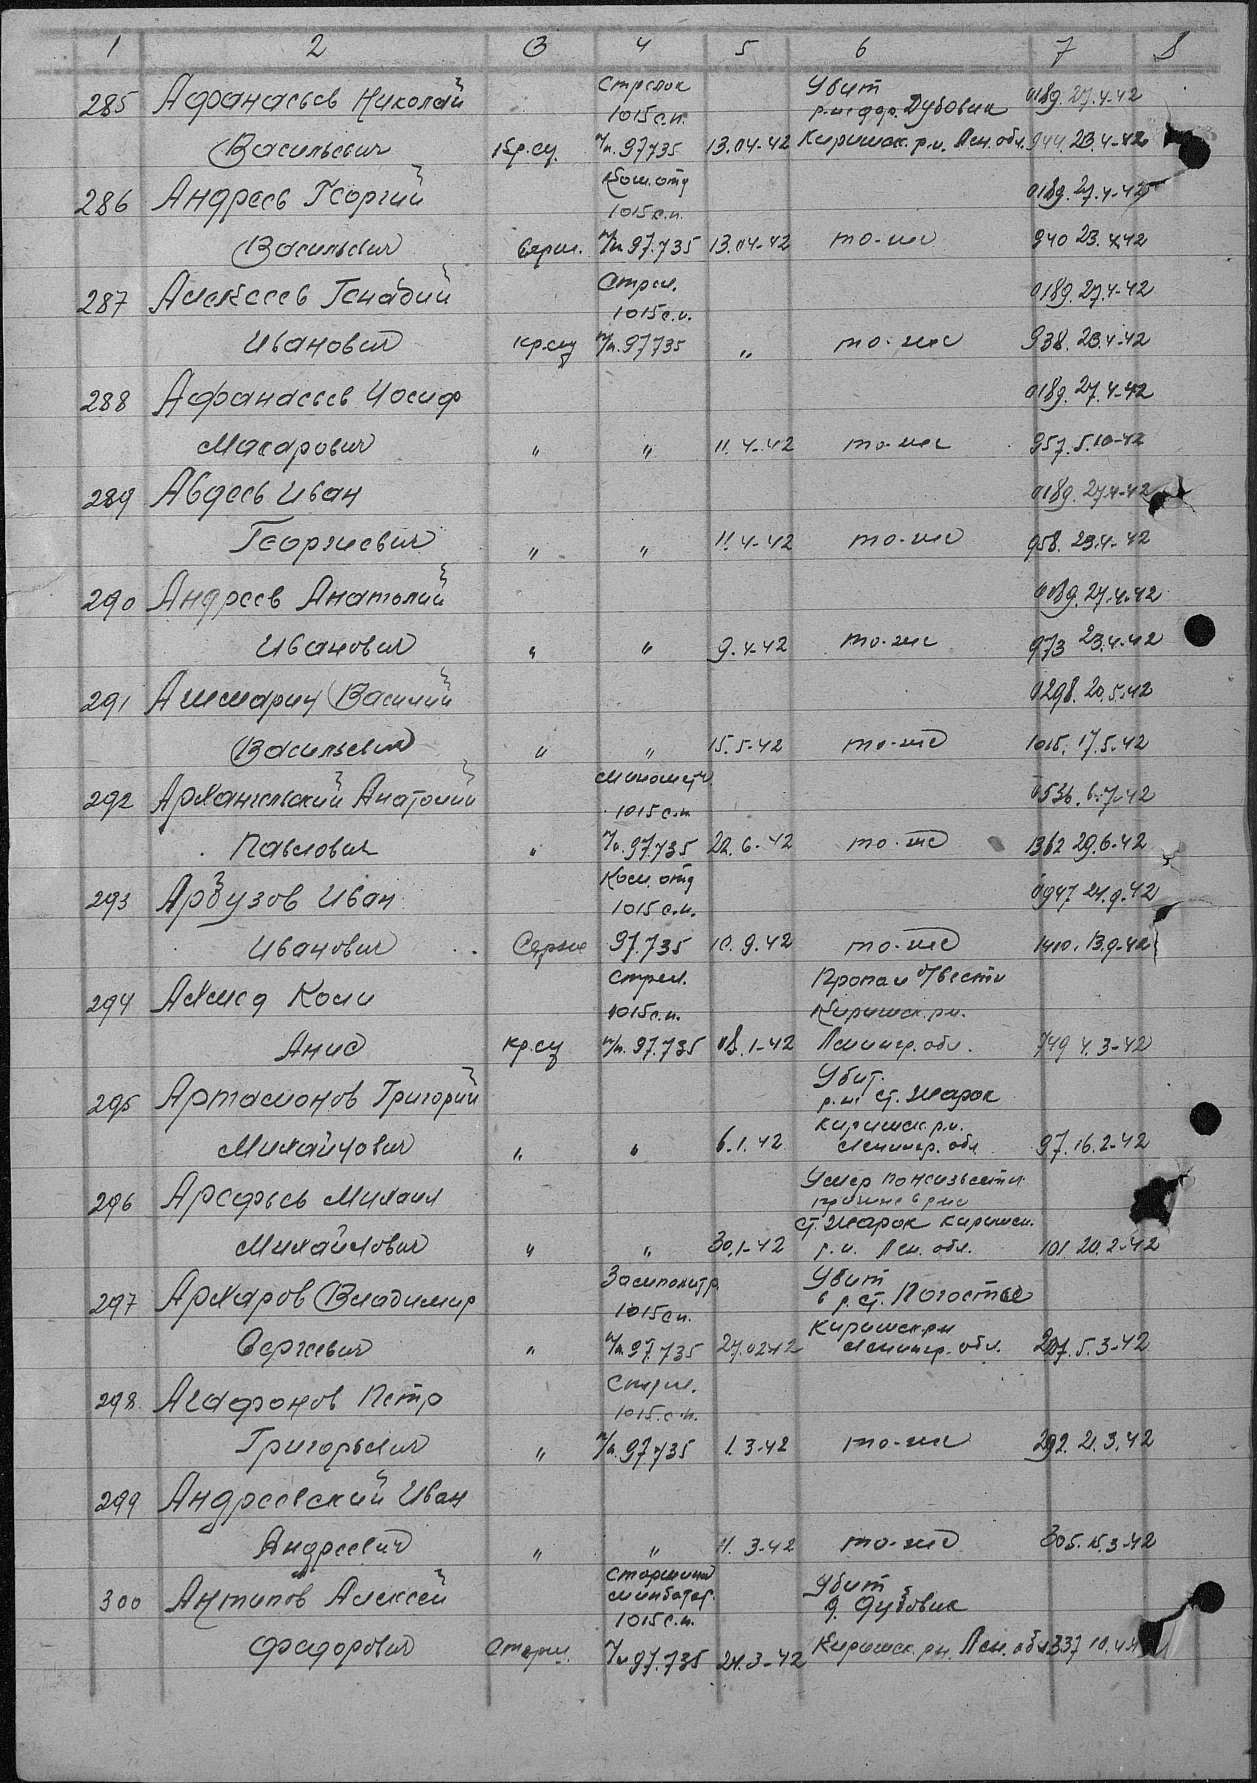 1 2 3 4 5 6 7 8
285 Афанасьев Николай Стрелок Убит 0189. 27.4-42
1015 с.п. р-не дер. Дубовик
Васильевич кр.сц. п/п. 97735 13.04-42 Киришск. р-н. Лен. обл. 944. 23.4-42
286 Андреев Георгий Ком. отд 0189. 27.4-42
1015 с.п.
Васильевич серж. п/п 97.735 13.04-42 то-же 940 23.4.42
287 Алексеев Генадий Стрел. 0189. 27.4-42
1015 с.п.
Иванович кр.сц п/п. 97735 " то-же 938. 23.4-42
288 Афанасьев Иосиф 0189. 27.4-42
Макарович " " 11.4-42 то-же 957. 5.10-42
289 Авдеев Иван 0189. 27.4-42
Георгиевич " " 11.4-42 то-же 958. 23.4-42
290 Андреев Анатолий 0189. 27.4-42
Иванович " " 9.4-42 то-же 973 23.4-42
291 Ашмарин Василий 0298. 20.5.42
Васильевич " " 15.5-42 то-же 1015. 17.5.42
292 Архангельский Анатолий Минометч. 0536. 6.7-42
1015 с.п.
Павлович " п/п. 97.735 22.6-42 то-же 1362 29.6-42
293 Арбузов Иван Ком. отд 0947 21.9.42
1015 с.п.
Иванович Серж 97.735 10.9.42 то-же 1410. 13.9-42
294 Ахмед Коли стрел. Пропал б/вести
1015 с.п. Киришск. р-н.
Анис кр.сц п/п. 97.735 08.1-42 Ленингр. обл. 749 4.3-42
295 Артамонов Григорий Убит.
р-не ст. Жарок
Киришск р-н.
Михайлович " " 6.1.42 Ленингр. обл 97. 16.2-42
296 Арефьев Михаил Умер по неизвестн.
причине в р-не
ст. Жарок Киришск.
Михайлович " " 30.1-42 р-н. Лен. обл. 101. 20.2-42
297 Архаров Владимир Замполитр. Убит
1015 с.п. в р. ст. Погостье
Киришск р-н
Сергеевич " п/п. 97.735 27.02-42 Ленингр. обл. 207. 5.3-42
298 Агафонов Петр Стрел.
1015 с.п.
Григорьевич " п/п. 97.735 1.3-42 то-же 292. 21.3.42
299 Андреевский Иван
Андреевич " " 11.3-42 то-же 305. 15.3-42
300 Антипов Алексей Старшина Убит
минбатар. д. Дубовик
1015 с.п.
Федорович Старш. п/п 97.735 24.3-42 Киришск. р-н. Лен. обл 337 10.4